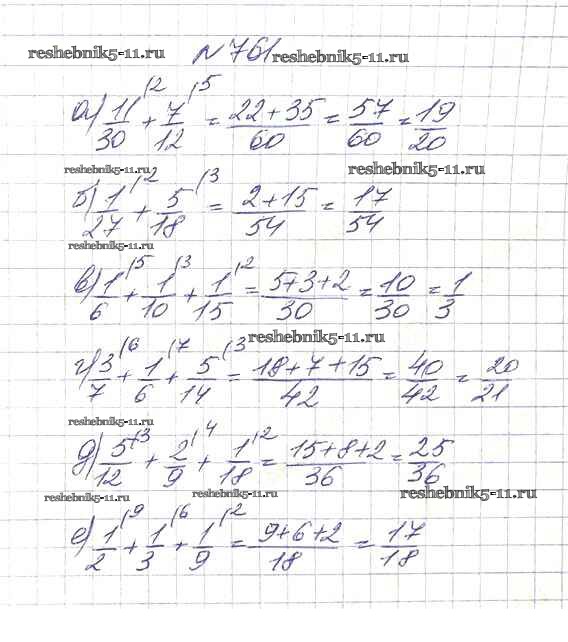 reshebnik5-11.ru № 761 reshebnik5-11.ru
а) 11/30 (2 + 7/12 (5 = 22+35/60 = 57/60 = 19/20
reshebnik5-11.ru reshebnik5-11.ru
б) 1/27 (2 + 5/18 (3 = 2+15/54 = 17/54
reshebnik5-11.ru
в) 1/6 (5 + 1/10 (3 + 1/15 (2 = 5+3+2/30 = 10/30 = 1/3
reshebnik5-11.ru
г) 3/7 (6 + 1/6 (7 + 5/14 (3 = 18+7+15/42 = 40/42 = 20/21
reshebnik5-11.ru
д) 5/12 (3 + 2/9 (4 + 1/18 (2 = 15+8+2/36 = 25/36
reshebnik5-11.ru reshebnik5-11.ru reshebnik5-11.ru
е) 1/2 (9 + 1/3 (6 + 1/9 (2 = 9+6+2/18 = 17/18